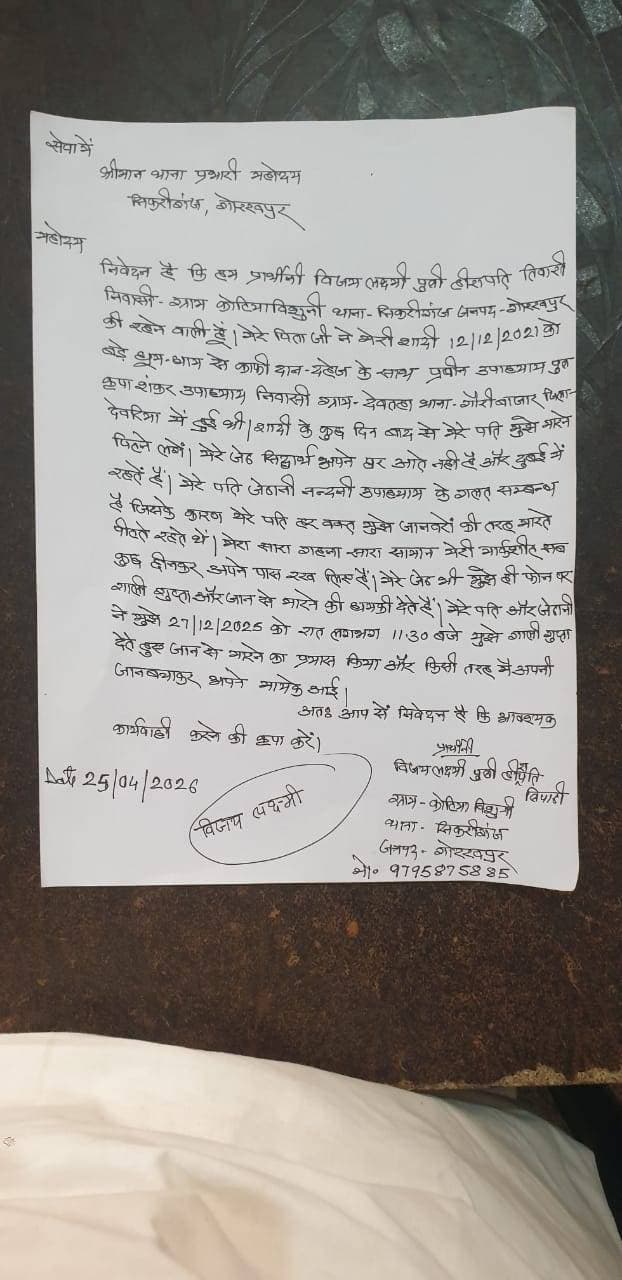 सेवा में
श्रीमान थाना प्रभारी महोदय
सिकरीगंज, गोरखपुर
महोदय
निवेदन है कि हम प्रार्थीनी विजय लक्ष्मी पुत्री तिवारी
निवासी - ग्राम कोटिया विशुनी थाना - सिकरीगंज जनपद - गोरखपुर
की रहने वाली हूँ। मेरे पिता जी ने मेरी शादी 12/12/2021 को
बड़े धूम-धाम से काफी दान-दहेज के साथ प्रवीन उपाध्याय पुत्र
कृपा शंकर उपाध्याय निवासी ग्राम - थाना - गौरीबाजार जिला-
देवरिया में हुई थी। शादी के कुछ दिन बाद से मेरे पति मुझे मारने
पिटने लगे। मेरे जेठ सिद्धार्थ अपने घर आते नही है और दुबई में
रहते हैं। मेरे पति जेठानी नन्दनी उपाध्याय के गलत सम्बन्ध
है जिसके कारण मेरे पति हर वक्त मुझे जानवरों की तरह मारते
पीटते रहते थे। मेरा सारा गहना सारा सामान मेरी मार्कशीट सब
कुछ छीनकर अपने पास रख लिए हैं। मेरे जेठ भी मुझे ही फोन पर
गाली गुप्ता और जान से मारने की धमकी देते हैं। मेरे पति और जेठानी
ने मुझे 27/12/2025 को रात लगभग 11:30 बजे मुझे गाली गुप्ता
देते हुए जान से मारने का प्रयास किया और किसी तरह मै अपनी
जान बचाकर अपने मायके आई।
अतः आप से निवेदन है कि आवश्यक
कार्यवाही करने की कृपा करें।
प्रार्थीनी
विजय लक्ष्मी पुत्री
त्रिपाठी
Date 25/04/2026
विजय लक्ष्मी
ग्राम - कोटिया विशुनी
थाना - सिकरीगंज
जनपद - गोरखपुर
मो० 9795875885